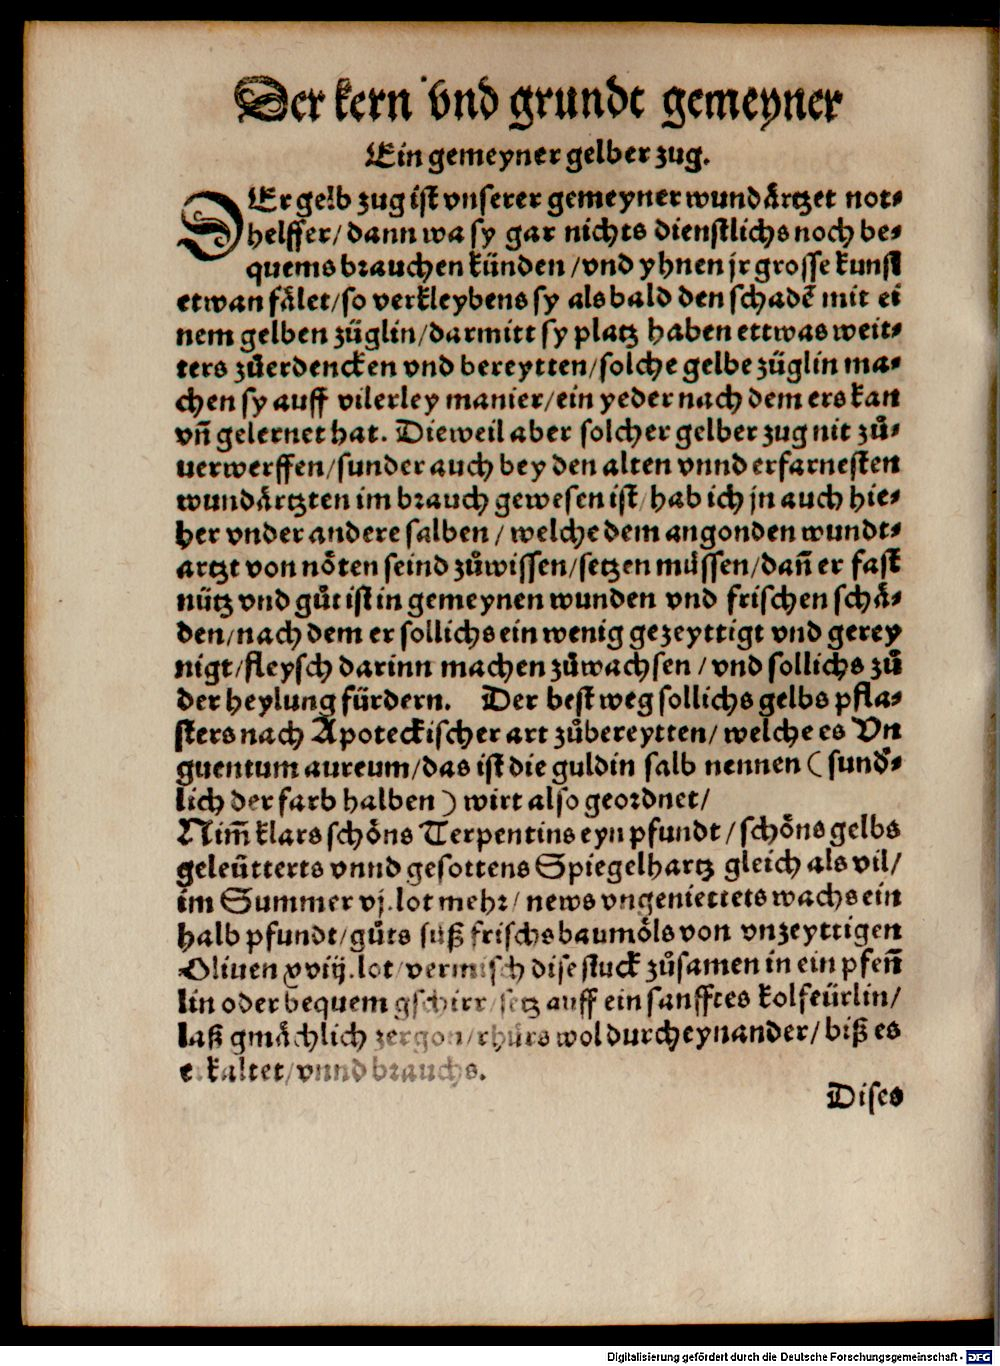 Der kern vnd grundt gemeyner
Ein gemeyner gelber zug.
DEr gelb zug ist vnserer gemeyner wundårtzet not⸗
helffer/ dann wa sy gar nichts dienstlichs noch be⸗
quems brauchen künden /vnd yhnen jr grosse kunst
etwan fålet/so verkleybens sy als bald den schadē mit ei
nem gelben züglin/darmitt sy platz haben ettwas weit⸗
ters zůerdencken vnd bereytten/solche gelbe züglin ma⸗
chen sy auff vilerley manier/ein yeder nach dem ers kan
vñ gelernet hat. Dieweil aber solcher gelber zug nit zů⸗
uerwerffen/sunder auch bey den alten vnnd erfarnesten
wundårtzten im brauch gewesen ist/hab ich jn auch hie⸗
her vnder andere salben / welche dem angonden wundt⸗
artzt von nöten seind zůwissen/setzen müssen/dañ er fast
nütz vnd gůt ist in gemeynen wunden vnd frischen schå⸗
den/nach dem er sollichs ein wenig gezeyttigt vnd gerey
nigt/fleysch darinn machen zůwachsen /vnd sollichs zů
der heylung fürdern. Der best weg sollichs gelbs pfla⸗
sters nach Apoteckischer art zůbereytten/ welche es Vn
guentum aureum/das ist die guldin salb nennen ( sund'⸗
lich der farb halben ) wirt also geordnet/
Nim̃ klars schöns Terpentins eyn pfundt / schöns gelbs
geleütterts vnnd gesottens Spiegelhartz gleich als vil/
im Summer vj.lot mehr/ news vngeniettets wachs ein
halb pfundt/gůts süß frischs baumöls von vnzeyttigen
Oliuen xviij.lot/vermisch dise stuck zůsamen in ein pfeñ
lin oder bequem gschirr/setz auff ein sanfftes kolfeürlin/
laß gmåchlich zergon/rhürs wol durcheynander/ biß es
erkaltet/vnnd brauchs.
Dises
Digitalisierung gefördert durch die Deutsche Forschungsgemeinschaft - DFG